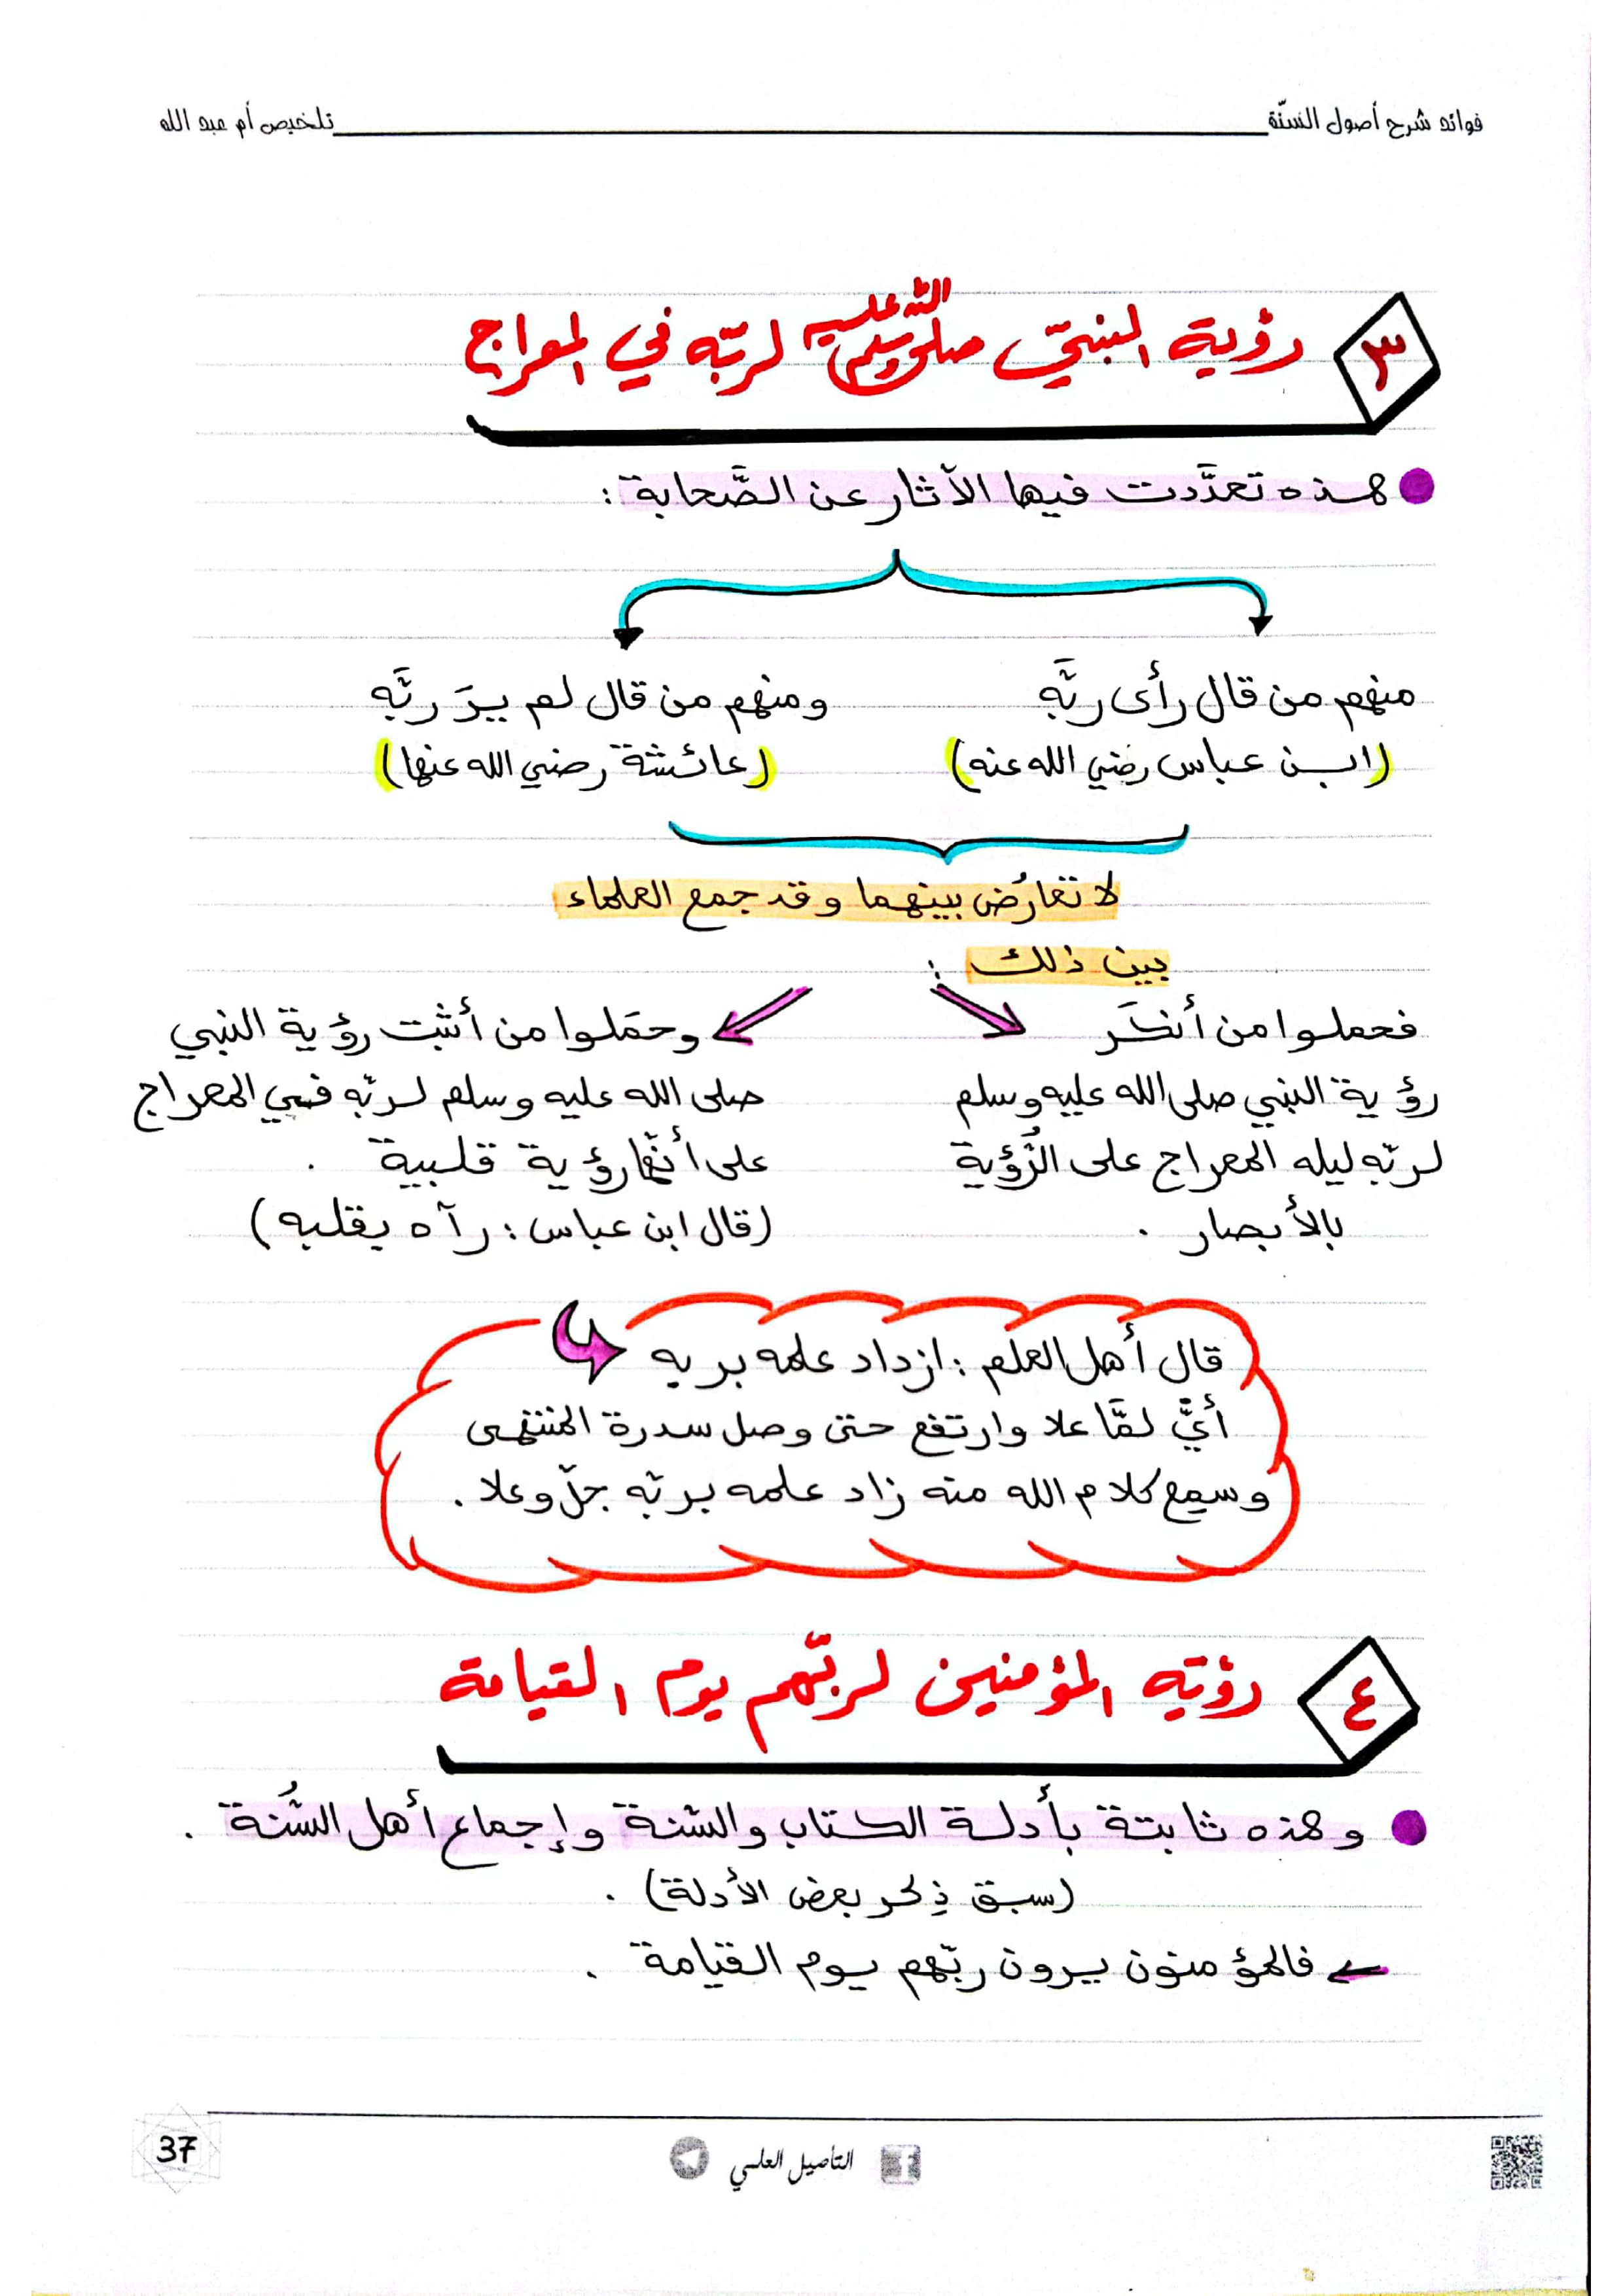 فوائد شرح أصول السنّة
تلخيص أم عبد الله
٣
رؤية النبيّ صلى الله عليه وسلم لربّه في المعراج
هذه تعدَّدت فيها الآثار عن الصَّحابة :
منهم من قال رأى ربَّه
(ابن عباس رضي الله عنه)
ومنهم من قال لم يرَ ربَّه
(عائشة رضي الله عنها)
لا تعارُض بينهما وقد جمع العلماء
بين ذلك :
فحملوا من أنكَر
رؤية النبي صلى الله عليه وسلم
لربّه ليله المعراج على الرُّؤية
بالأبصار .
وحمَلوا من أثبت رؤية النبي
صلى الله عليه وسلم لربّه في المعراج
على أنّها رؤية قلبية .
(قال ابن عباس : رآه بقلبه)
قال أهل العلم : ازداد علمه بربه
أيّ لمَّا علا وارتفع حتى وصل سدرة المنتهى
وسمع كلام الله منه زاد علمه بربّه جلّ وعلا .
٤
رؤته المؤمنين لربّهم يوم القيامة
وهذه ثابتة بأدلة الكتاب والسّنة وإجماع أهل السُّنة .
(سبق ذِكر بعض الأدلة) .
فالمؤمنون يرون ربّهم يوم القيامة .
التأصيل العلمي
37